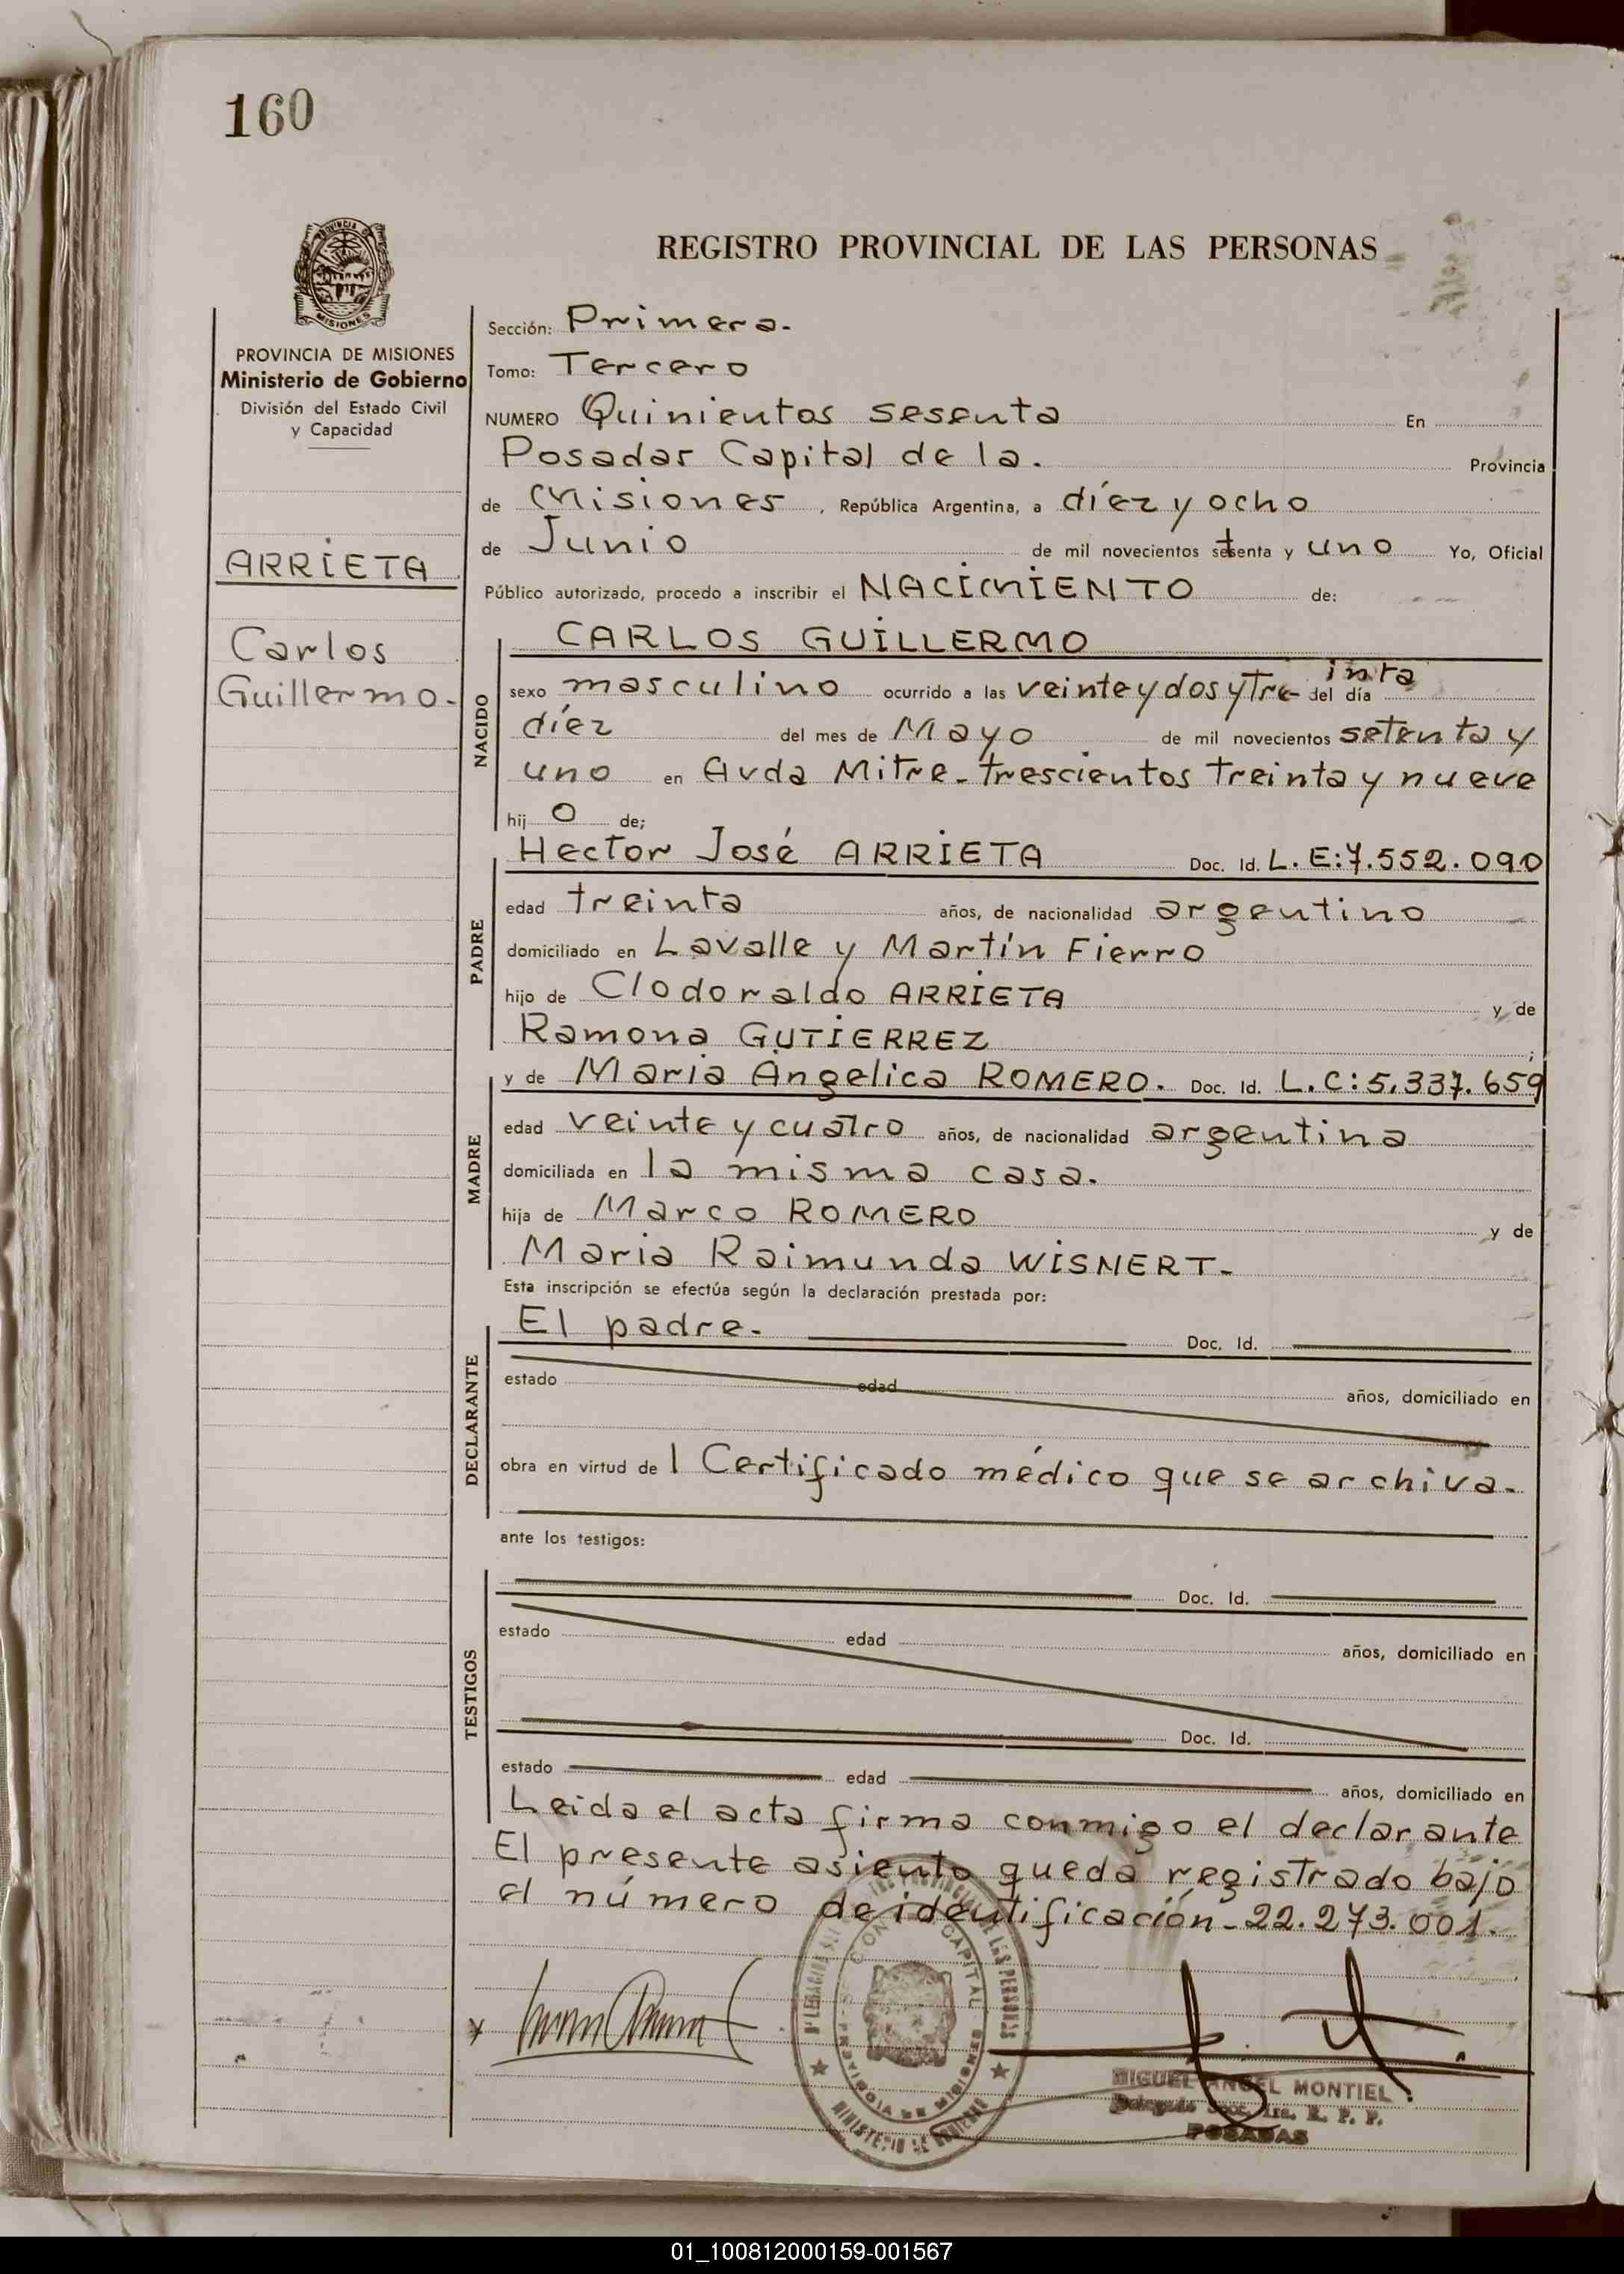 160
PROVINCIA DE MISIONES
Ministerio de Gobierno
División del Estado Civil
y Capacidad
ARRIETA
Carlos
Guillermo.
REGISTRO PROVINCIAL DE LAS PERSONAS
Sección: Primera.
Tomo: Tercero
NUMERO Quinientos sesenta En
Posadas Capital de la. Provincia
de Misiones, República Argentina, a díez y ocho
de Junio de mil novecientos setenta y uno Yo, Oficial
Público autorizado, procedo a inscribir el NACIMIENTO de:
CARLOS GUILLERMO
NACIDO
sexo masculino ocurrido a las veinte y dos y tre- inta del día
díez del mes de Mayo de mil novecientos setenta y
uno en Avda Mitre - trescientos treinta y nueve
hij o de;
PADRE
Hector José ARRIETA Doc. Id. L. E: 7.552.090
edad treinta años, de nacionalidad argentino
domiciliado en Lavalle y Martín Fierro
hijo de Clodoraldo ARRIETA y de
Ramona GUTIERREZ ;
MADRE
y de Maria Angelica ROMERO. Doc. Id. L.C: 5.337.659
edad veinte y cuatro años, de nacionalidad argentina
domiciliada en la misma casa.
hija de Marco ROMERO y de
Maria Raimunda WISNERT-
Esta inscripción se efectúa según la declaración prestada por:
DECLARANTE
El padre. Doc. Id.
estado edad años, domiciliado en
obra en virtud de l Certificado médico que se archiva.
ante los testigos:
TESTIGOS
Doc. Id.
estado edad años, domiciliado en
Doc. Id.
estado edad años, domiciliado en
Leida el acta firma conmigo el declarante
El presente asiento queda registrado bajo
el número de identificación - 22.273.001.
CAPITAL
PROVINCIA DE MISIONES
MINISTERIO DE GOBIERNO
MIGUEL ANGEL MONTIEL
R. P. P.
POSADAS
01_100812000159-001567